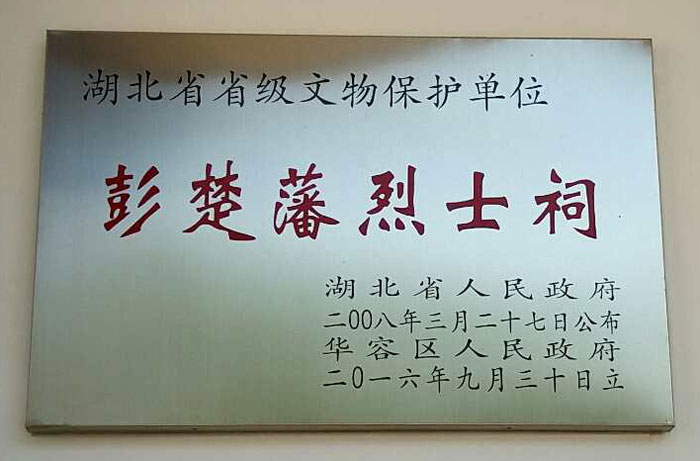 湖北省省级文物保护单位
彭楚藩烈士祠
湖北省人民政府
二〇〇八年三月二十七日公布
华容区人民政府
二〇一六年九月三十日立